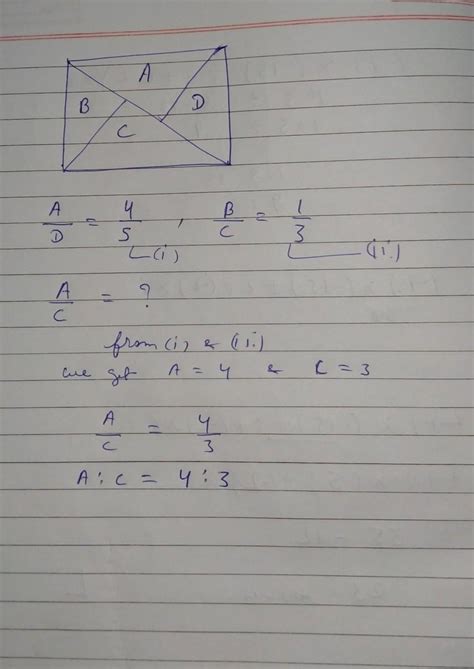 A
B
D
C
A/D = 4/5 , B/C = 1/3
(i) (ii.)
A/C = ?
from (i) & (ii.)
we get A = 4 & C = 3
A/C = 4/3
A : C = 4 : 3